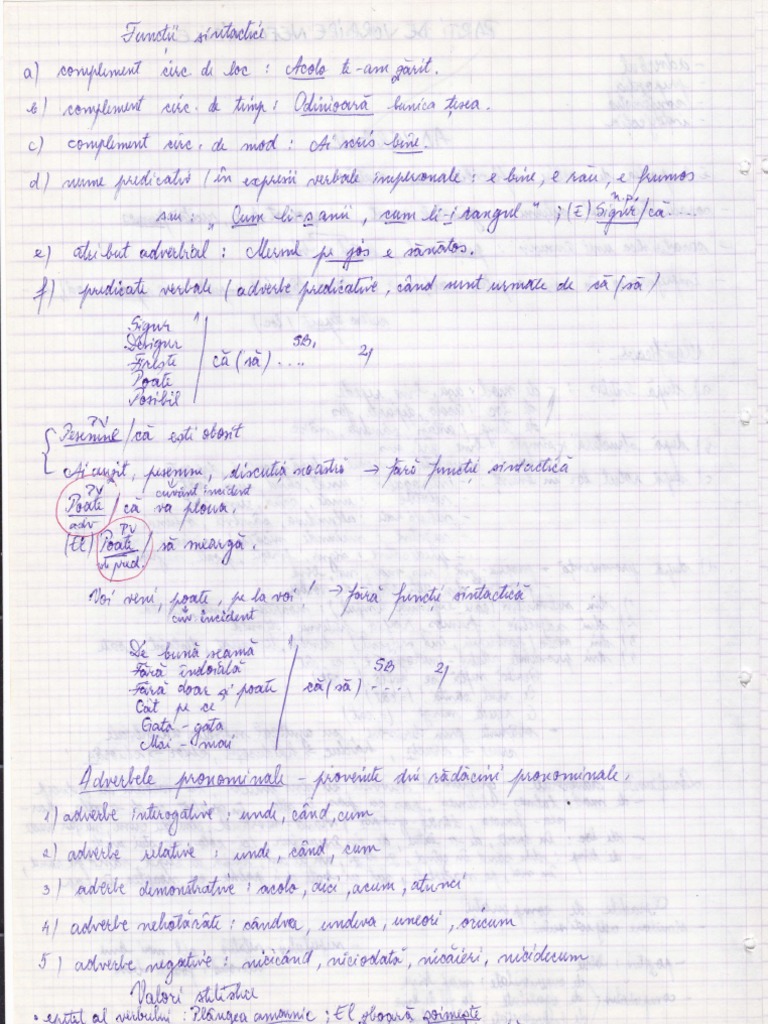 Funcții sintactice
a) complement circ de loc : Acolo te-am zărit.
b) complement circ. de timp : Odinioară bunica țesea.
c) complement circ. de mod : Ai scris bine.
d) nume predicativ / în expresii verbale impersonale : e bine, e rău, e frumos
n.p.
sau : „ Cum li-s sanii, cum li-i rangul " ; (E) Sigur / că ....
e) atribut adverbial : Mersul pe jos e sănătos.
f) predicate verbale ( adverbe predicative, când sunt urmate de că (să)
Sigur
Desigur
Firește
Poate
Posibil
1
că (să) ....
SB,
2/
PV
Pesemne / că ești obosit
Ai auzit, pesemne, discuția noastră → fără funcție sintactică
cuvânt incident
PV
Poate / că va ploua.
adv
PV
(El) Poate / să meargă.
v. pred.
Voi veni, poate, pe la voi ! → fără funcție sintactică
cuv. incident
De bună seamă
Fără îndoială
Fără doar și poate
Cât pe ce
Gata - gata
Mai - mai
1
că (să) ....
SB
2/
Adverbele pronominale - provenite din rădăcini pronominale.
1) adverbe interogative : unde, când, cum
2) adverbe relative : unde, când, cum
3) adverbe demonstrative : acolo, aici, acum, atunci
4) adverbe nehotărâte : cândva, undeva, uneori, oricum
5) adverbe negative : nicicând, niciodată, nicăieri, nicidecum
Valori stilistice
• epitet al verbului : Plângea amarnic ; El zboară șoimește